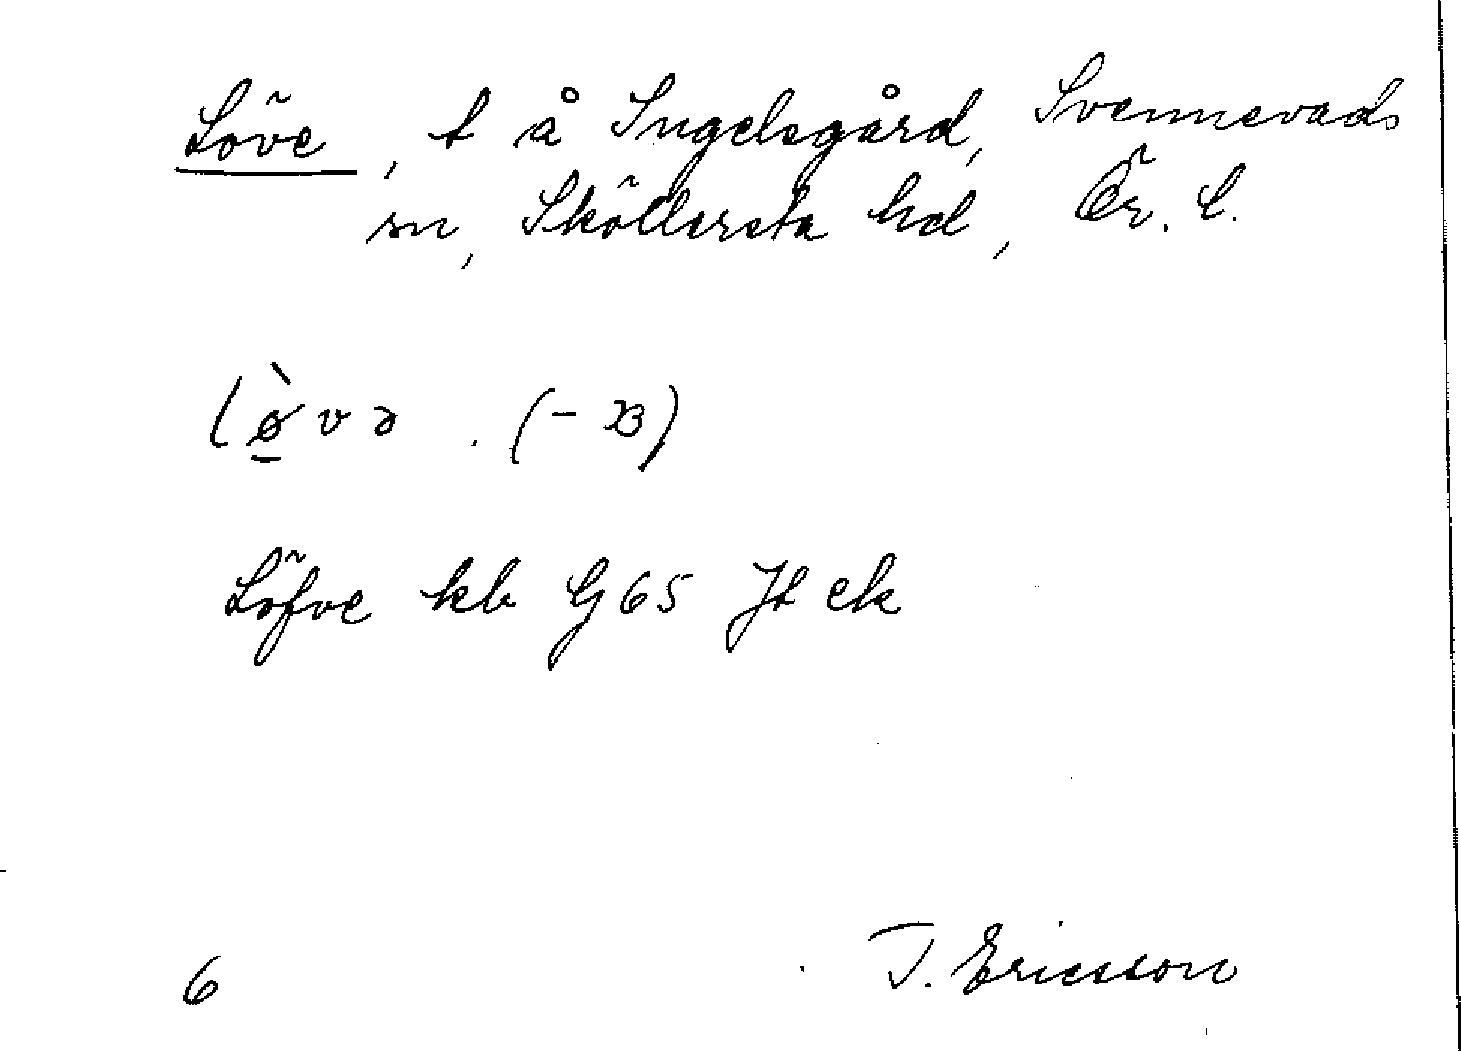 Löve, t å Ingelsgård, Svennevads
sn, Sköllersta hd, Ör. l.
lø̀və. (-B)
Löfve kb G65 Jb ek
6 T. Ericsson